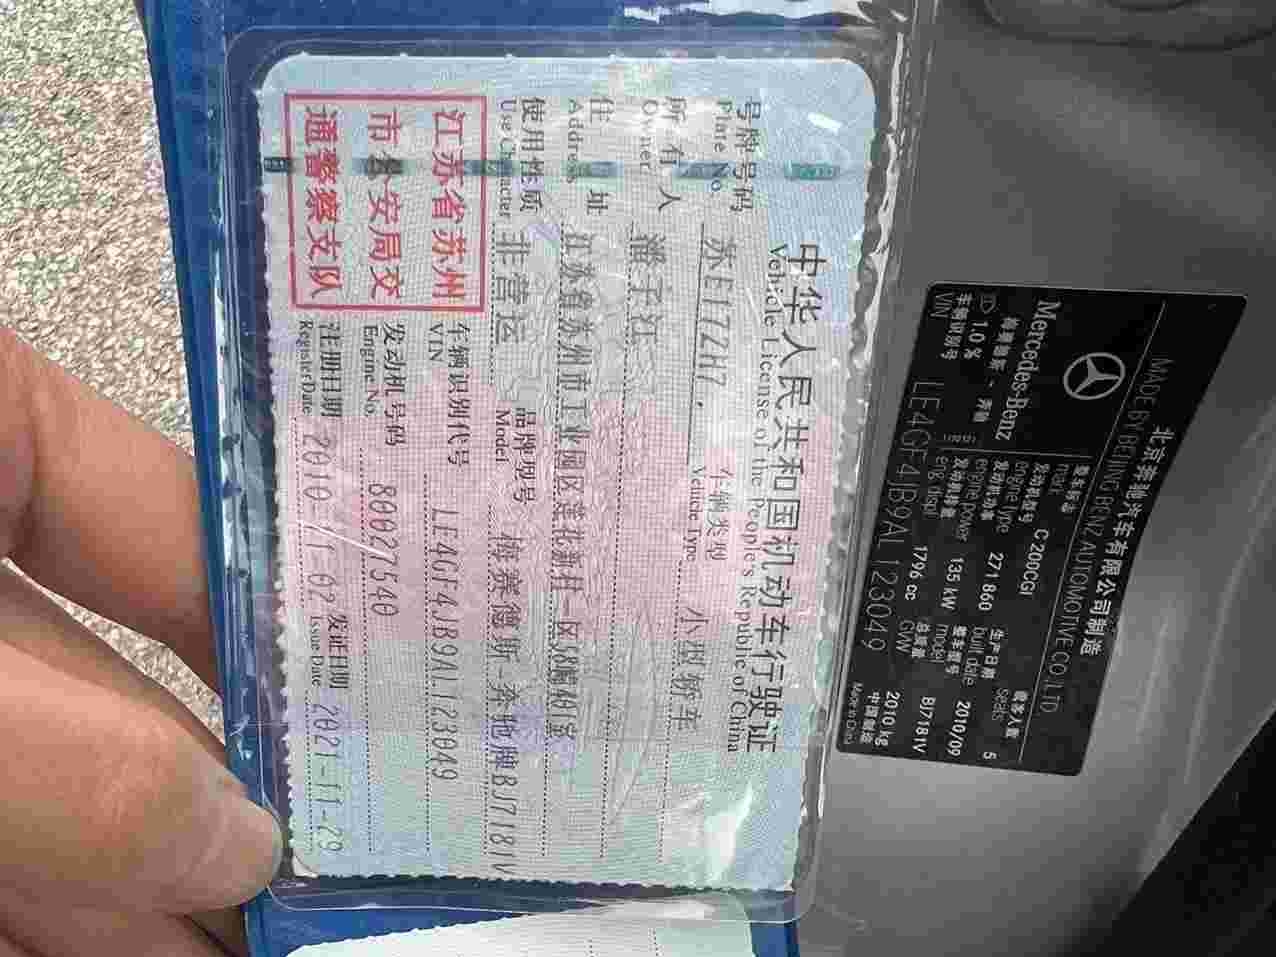 中华人民共和国机动车行驶证
Vehicle License of the People's Republic of China
号牌号码
Plate No.
车辆类型
Vehicle Type
小型轿车
所有人
Owner
住址
Address
江苏省苏州市工业园区莲花新村一区
使用性质
Use Character
非营运
品牌型号
Model
梅赛德斯-奔驰牌BJ7181V
车辆识别代号
VIN
LE4GF4JB9AL123049
发动机号码
Engine No.
80027540
注册日期
Register Date
发证日期
Issue Date
2021-11-29
江苏省苏州
市公安局交
通警察支队
北京奔驰汽车有限公司制造
MADE BY BEIJING BENZ AUTOMOTIVE CO.,LTD
Mercedes-Benz
整车标志
mark
C 200CGI
乘客人数
seats
5
发动机型号
engine type
271 860
生产日期
built date
2010/09
发动机功率
engine power
135 kW
整车型号
model
BJ7181V
1.0 %
发动机排量
eng. displ
1796 cc
总质量
GVW
2010 kg
车辆识别号
VIN
LE4GF4JB9AL123049
中国制造
Made in China